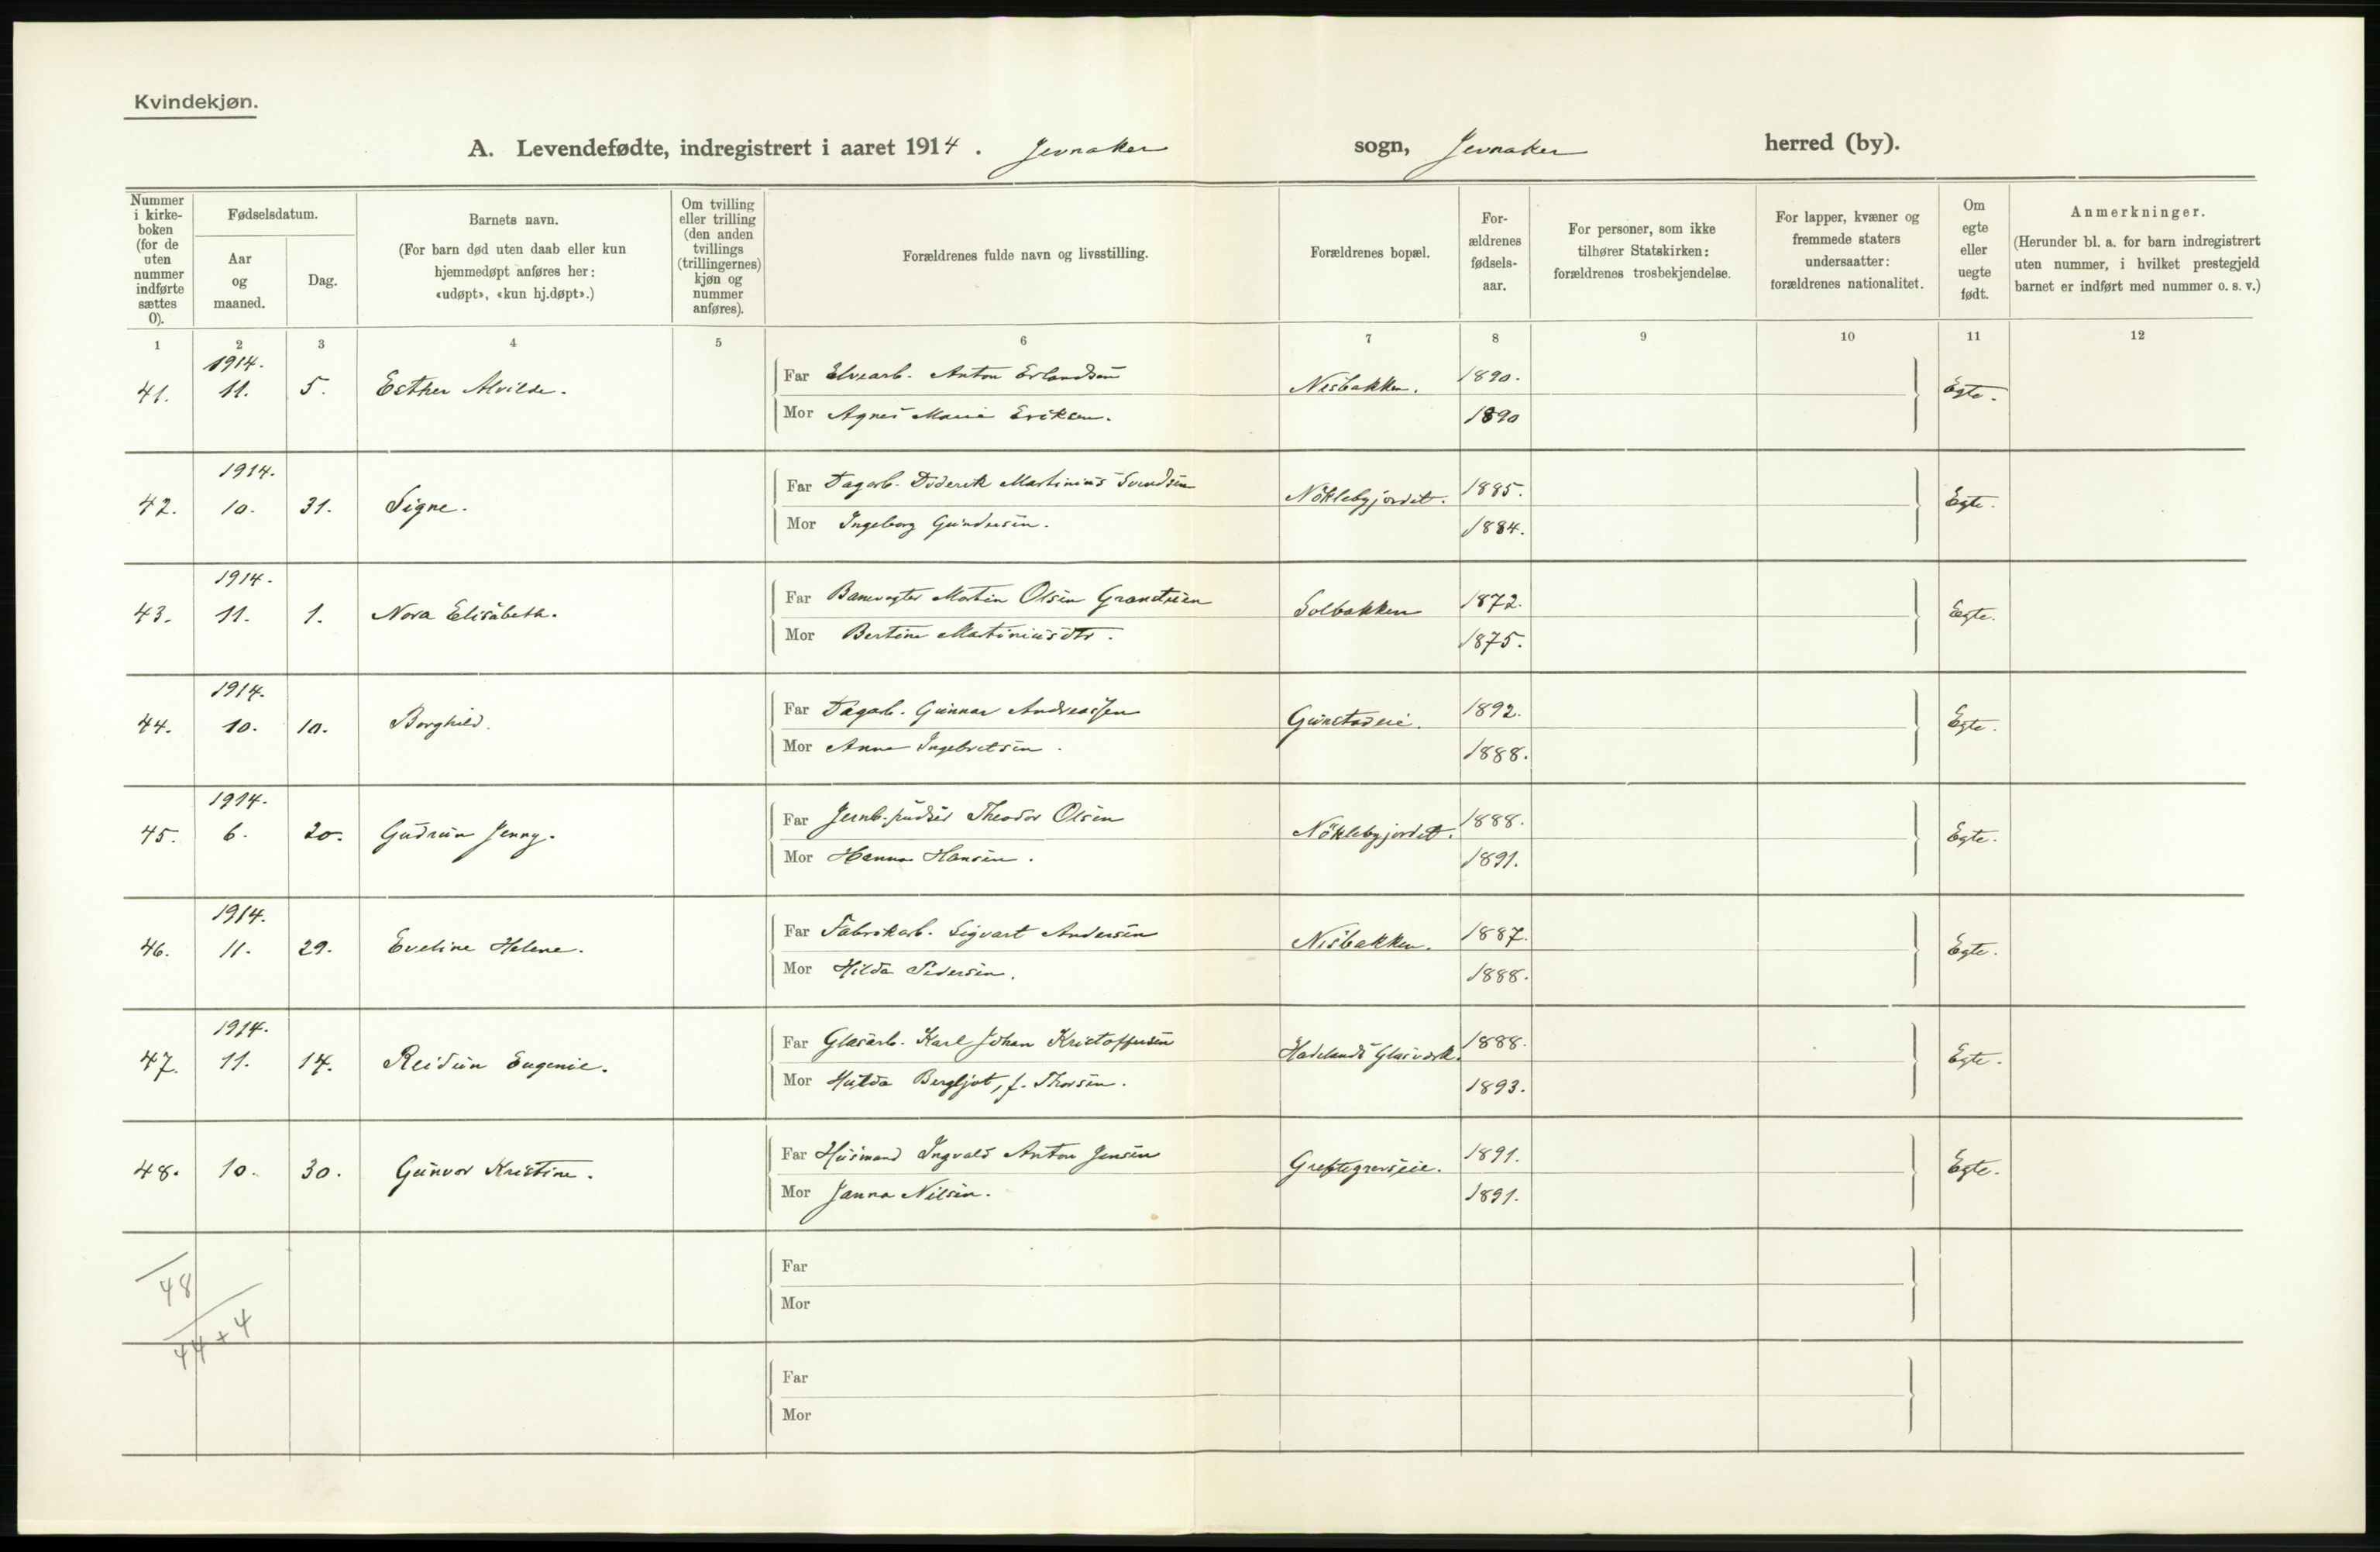 Kvindekjøn.
A. Levendefødte, indregistrert i aaret 1914. Jevnaker sogn, Jevnaker herred (by).
Nummer i kirke-boken (for de uten nummer indførte sættes 0).
Fødselsdatum.
Aar og maaned.
Dag.
Barnets navn.
(For barn død uten daab eller kun hjemmedøpt anføres her: «udøpt», «kun hj.døpt».)
Om tvilling eller trilling (den anden tvillings (trillingernes) kjøn og nummer anføres).
Forældrenes fulde navn og livsstilling.
Forældrenes bopæl.
For-ældrenes fødsels-aar.
For personer, som ikke tilhører Statskirken: forældrenes trosbekjendelse.
For lapper, kvæner og fremmede staters undersaatter: forældrenes nationalitet.
Om egte eller uegte født.
Anmerkninger.
(Herunder bl. a. for barn indregistrert uten nummer, i hvilket prestegjeld barnet er indført med nummer o. s. v.)
1 2 3 4 5 6 7 8 9 10 11 12
1914.
41. 11. 5. Esther Alvilde. Far Elvearb. Anton Erlandsen Nesbakken. 1890. Egte.
Mor Agnes Marie Eriksen. 1890
1914.
42. 10. 31. Signe. Far Dagarb. Diderik Martinius Svendsen Nöklebyjordet. 1885. Egte.
Mor Ingeborg Gundersen. 1884.
1914.
43. 11. 1. Nora Elisabeth. Far Banevogter Martin Olsen Grandtuen Solbakken 1872. Egte.
Mor Bertine Martiniusdtr. 1875.
1914.
44. 10. 10. Borghild. Far Dagarb. Gunnar Andreassen Gunstadeie. 1892. Egte.
Mor Anna Ingebretsen. 1888.
1914.
45. 6. 20. Gudrun Jenny. Far Jernb.pudser Theodor Olsen Nöklebyjordet. 1888. Egte.
Mor Hanna Hansen. 1891.
1914.
46. 11. 29. Eveline Helene. Far Fabrikarb. Sigvart Andersen Nesbakken. 1887. Egte.
Mor Hilda Pedersen. 1888.
1914.
47. 11. 14. Reidun Eugenie. Far Glasarb. Karl Johan Kristoffersen Hadelands Glasværk. 1888. Egte.
Mor Hulda Bergljot, f. Thorsen. 1893.
48. 10. 30. Gunvor Kristine. Far Husmand Ingvald Anton Jensen Greftegrevseie. 1891. Egte.
Mor Janna Nilsen. 1891.
Far
48
Mor
44+4
Far
Mor